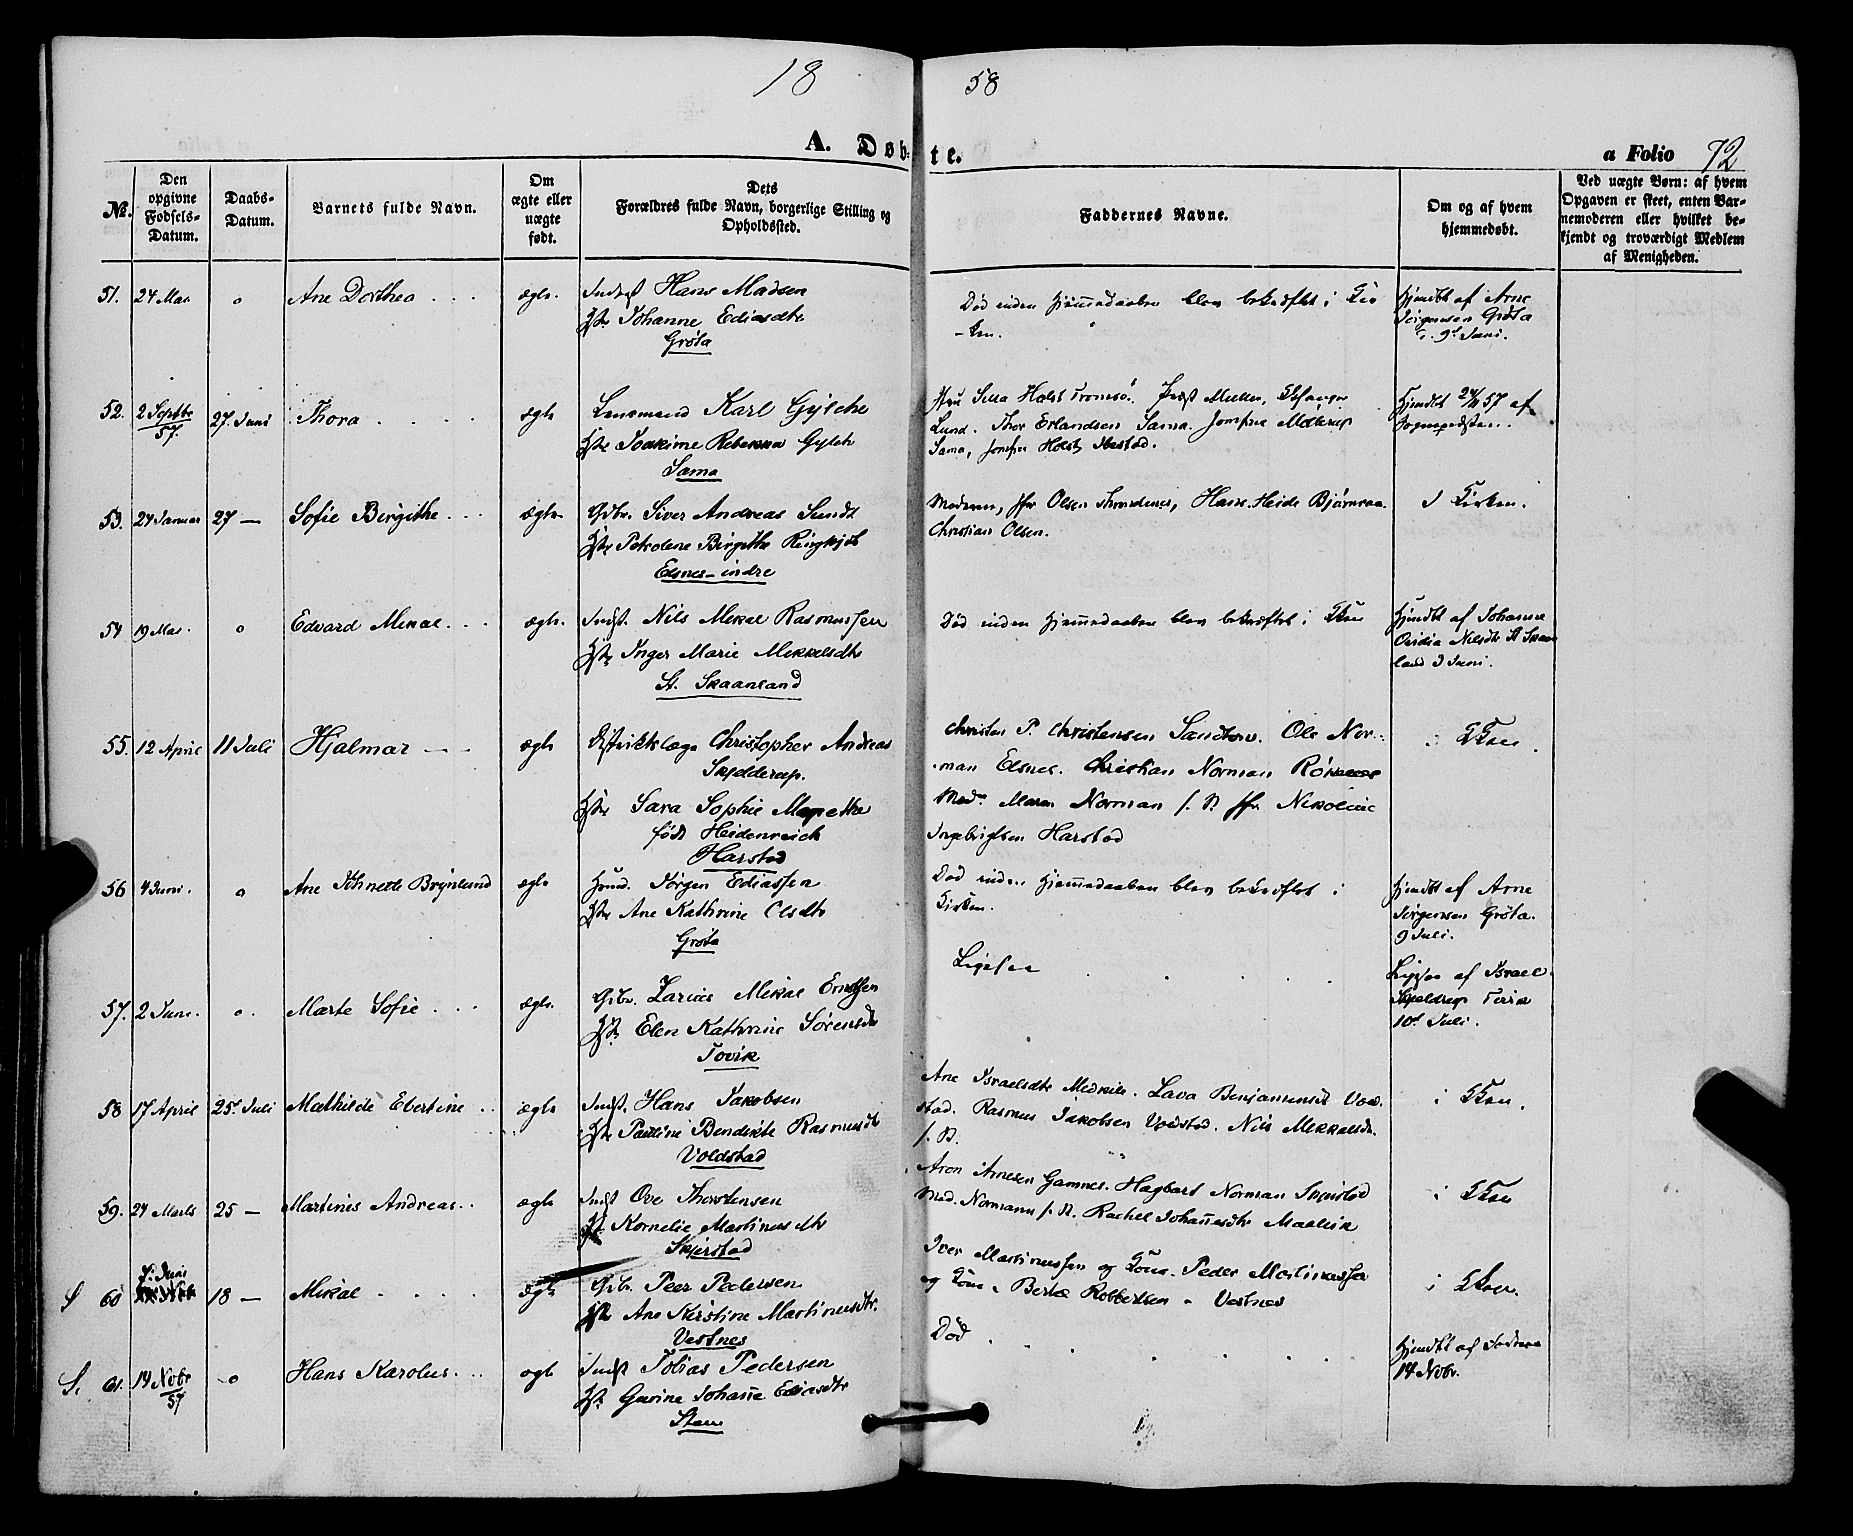 18 58
A. Døb- te.
a Folio 72
No.
Den opgivne Fødsels-Datum.
Daabs-Datum.
Barnets fulde Navn.
Om ægte eller uægte født.
Dets Forældres fulde Navn, borgerlige Stilling og Opholdssted.
Faddernes Navne.
Om og af hvem hjemmedøbt.
Ved uægte Børn: af hvem Opgaven er skeet, enten Barnemoderen eller hvilket bekjendt og troværdigt Medlem af Menigheden.
51. 24 Mai o Ane Dorthea ægte. Indst Hans Madsen
Johanne Ediasdtr
Grøta
Død inden Hjemmedaaben blev bekræftet i Kir
-ken.
Hjmdbt af Arne
Jørgensen Grøta
9d Juni.
52. 2 Septbr 57. 27. Juni Thora ægte Lensmand Karl Gylche
Joakime Rebekka Gylch
Sama
Holst Tromsø. Müller,
Lund. Thor Erlandsen Sama. Jomfrue
Sama, Jomfru Holst Ibestad.
Hjmdbt 57 af
Sognepræsten.
53. 24 Januar 27 — Sofie Birgithe ægte Grbr. Siver Andreas Sundt
Petroline Birgitte
Elsnes-indre
Moderen, Jfr Olsen Throndenes, Hans Heide Bjørnraa
Christian Olsen.
I Kirken.
54 19 Mai. o Edvard Mikal. ægte. Indst. Nils Mikal Rasmussen
Inger Marie Mikkelsdtr
St. Skaanland
Død inden Hjemmedaaben blev bekræftet i Kken
Hjmdbt af Johanna
Nilsdtr St Skaan
land 3 Juni.
55. 12 April 11 Juli Hjalmar ægte Distriktslæge Christopher Andreas
Skjelderup.
Sara Sophie
født Heidenreich
Harstad
Christen P. Christensen Sandtorv. Ole Nor-
man Elsnes. Christian Norman
Mad. Maren Norman s. St. Jfr. Nikoline
Ingebrigtsen Harstad
i Kken.
56 4 Juni. o Ane Johnette Brynlund ægte Jørgen Ediassen
Ane Kathrine Olsdtr
Grøta
Død inden Hjemmedaaben blev bekræftet i
Kirken.
Hjemdbt af Arne
Jørgensen Grøta.
9 Juli.
57. 2 Juni. o. Marte Sofie ægte. Grbr. Zarias Mikal Erntsen
Elen Kathrine Sørensdtr
Tovik
Ligesaa
Ligesaa af Israel
Skjeldrup
10d Juli.
58 17 April 25d Juli Mathilde Ebertine ægte Indst. Hans Jakobsen
Pauline Bendikte Rasmusdtr
Voldstad
Ane Israelsdtr Medkile. Lava Benjaminsdt Vol-
stad. Rasmus Jakobsen Voldstad. Nils Mikkelsen.
s. St.
i Kken.
59. 24 Marts 25 — Martines Andreas ægte Indst Ove Thorstensen
Kornelie Martinusdtr
Skjerstad
Aron Arnesen Gamnes. Hagbart Norman
Mad. Normann s. St. Rachel Johannesdtr
i Kken
S 60 Juni 18 — Mikal ægte Grbr. Peer Pedersen
Ane Kirstine Martinusdtr.
Vestnes
Iver Martinussen og Kone. Peder Martinussen
og Kone. Robertsen Vestnes
i Kken.
S. 61. 14 Nobr 57 o Hans Karolus. ægte Indst Tobias Pedersen
Gurine Johanne Ediasdtr
Død
Hjmdbt af
14 Nobr.